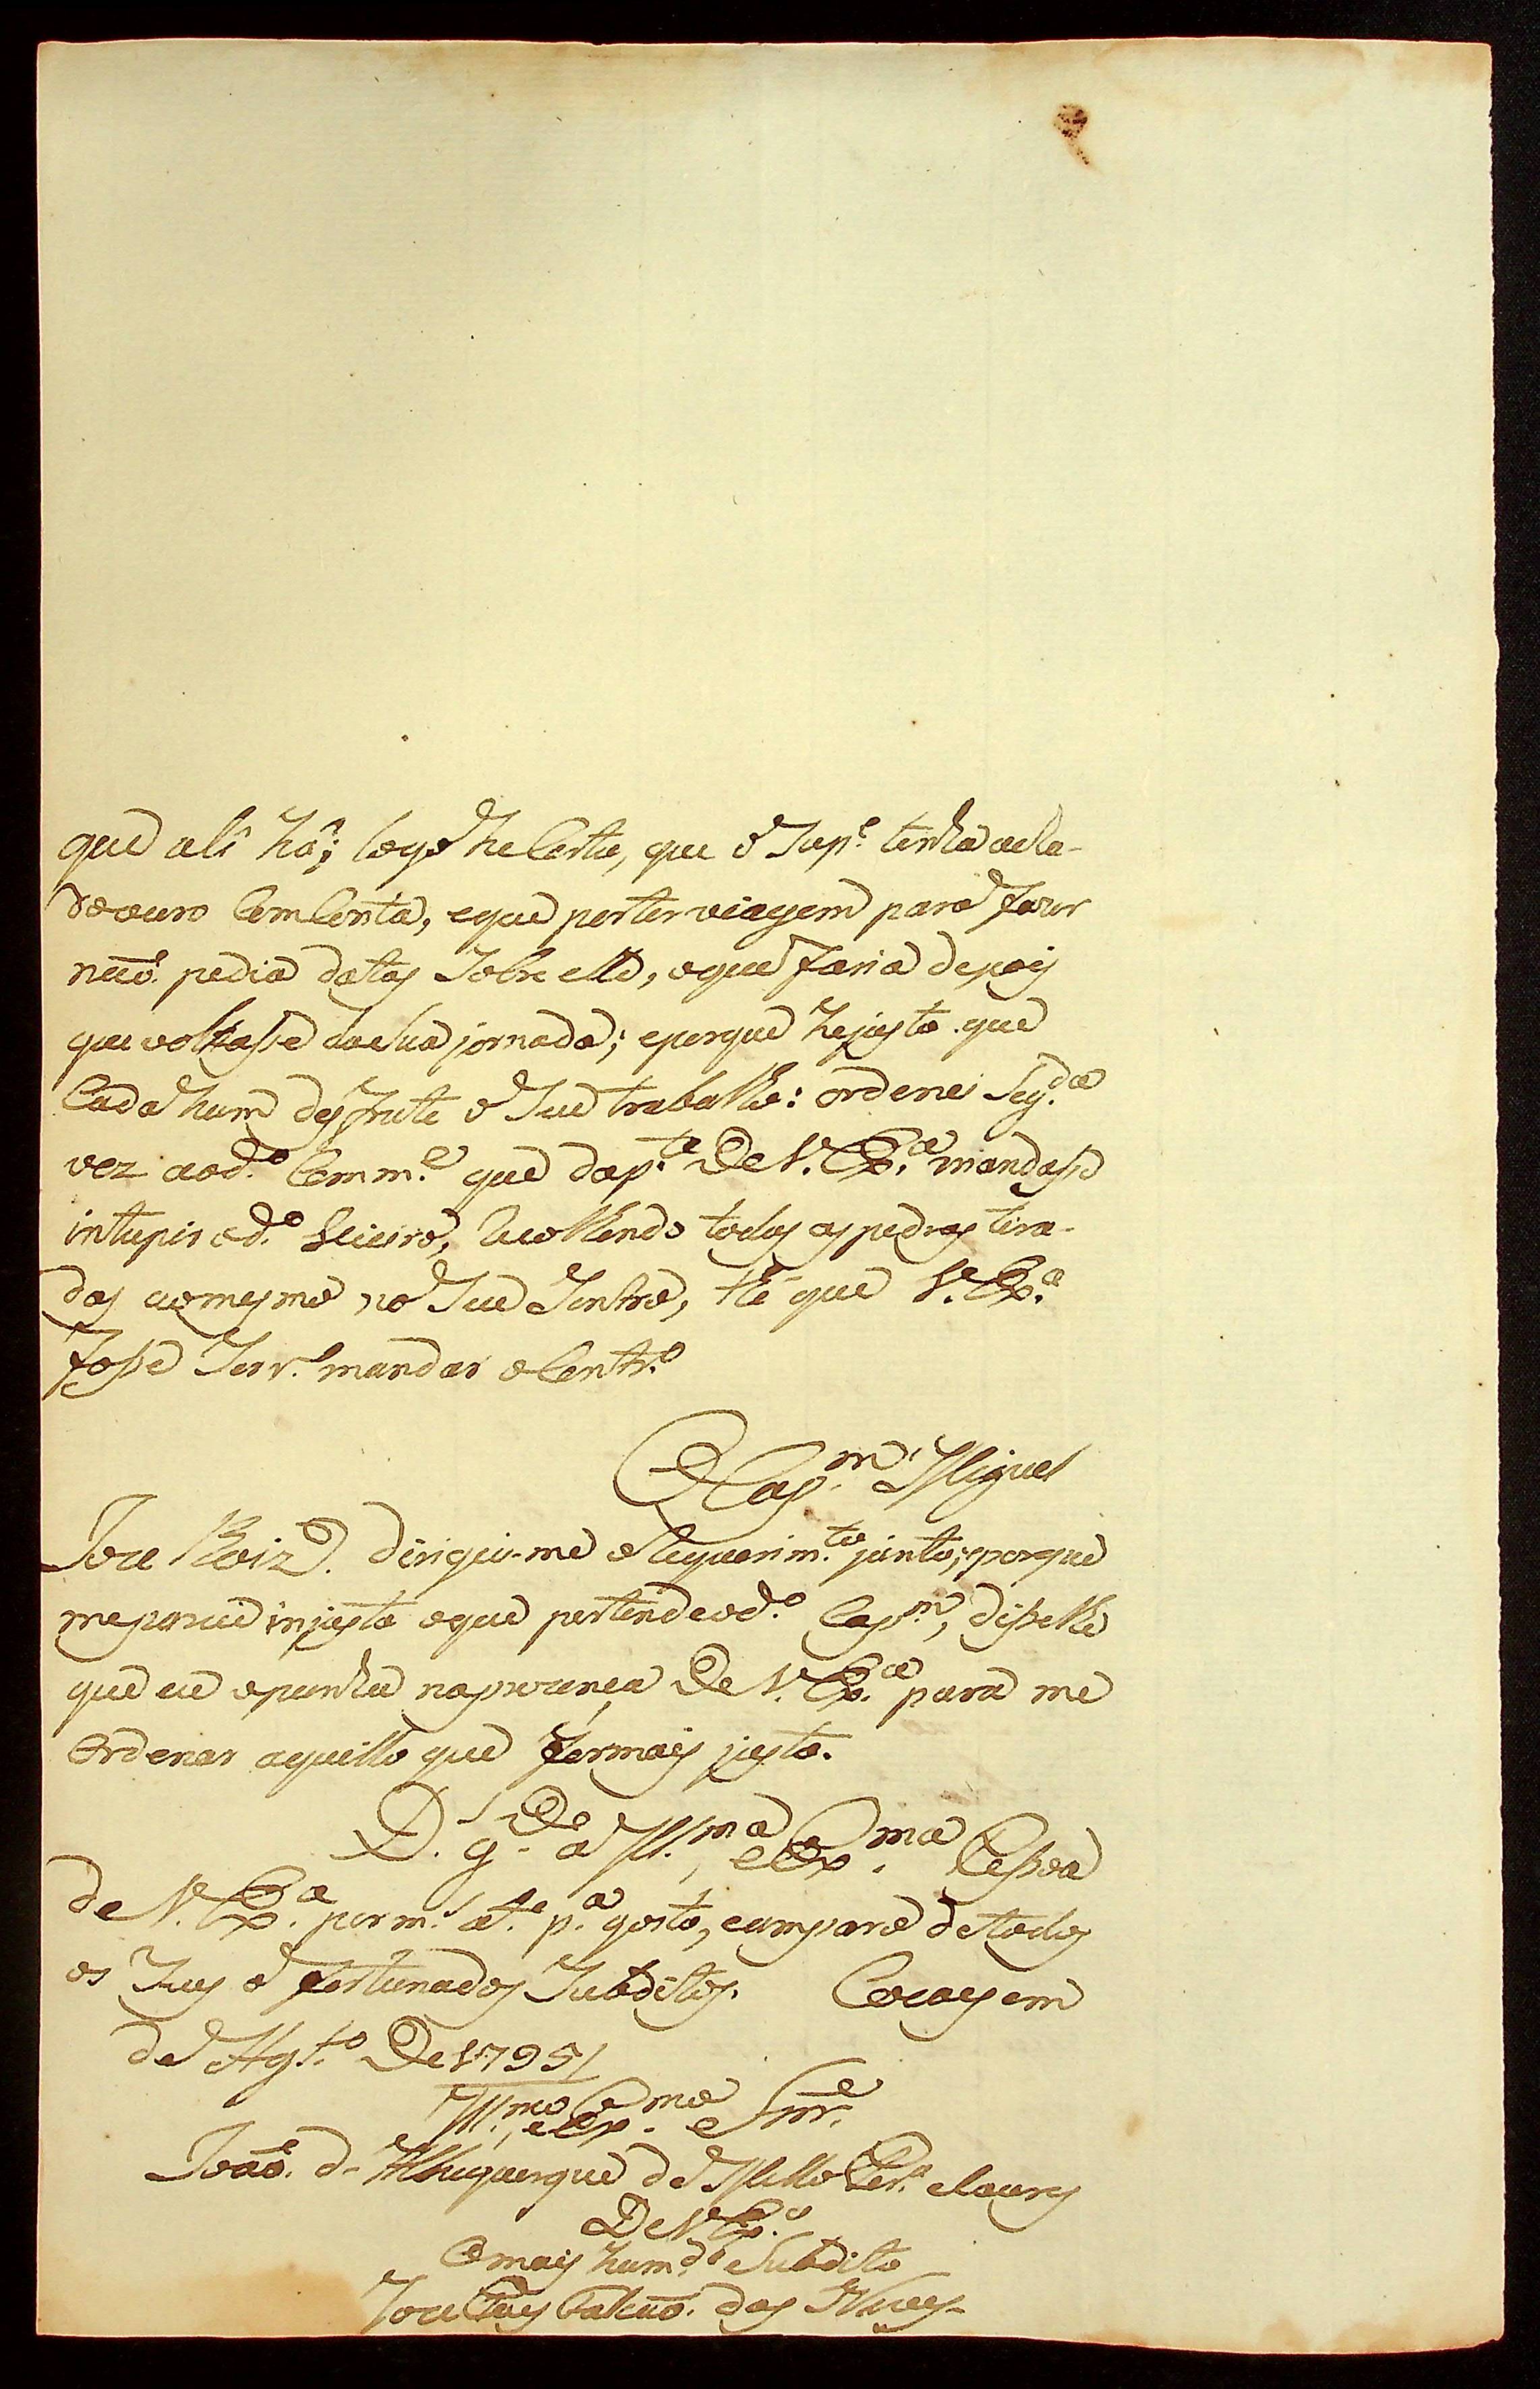 que ali há; logo he Certo, que o Sup.e tenha acha-
do ouro Com Conta, e que por ter viagem para fazer
neció. pedia datas Sobre elle, o que faria depois
que voltasse da Sua jornada; e porque he justo que
Cada hum desfrute o Seu trabalho: ordenei Seg.da
vez ao d.o Comm.e que da p.te De V. Ex.a mandasse
intupir o d.o Vieiro, recolhendo todas as pedras tira-
das ao mesmo no Seu Sentro, thé que V. Ex.a
fosse Serv.o mandar o Contr.o
O Cap.m Miguel
Joze Roiz. dirigiu-me o Requerim.to junto; e porque
me parece injusto o que pertende o d.o Cap.m, disselhe
que eu o punha na prezença De V. Ex.a para me
Ordenar aquillo que for mais justo.
D.s g.de a Ill.ma, e Ex.ma Pessoa
de V. Ex.a por m.s a.s p.a gosto, e amparo de todos
os Seus afortunados Subditos. Cocaes em
de Ag.to De 1795/
Ill.mo, e Ex.mo Snr.e
João. d' Albuquerque de Mello Per.a e Caceres
De V. Ex.a
O mais hum.de Subdito
Joze Luis Galvão. das Neves